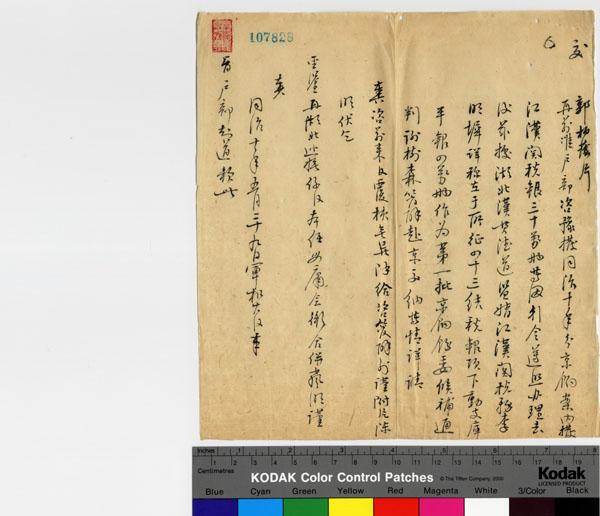 郭柏蔭片
再前准戶部咨撥同治十年分京餉案內撥
江漢關稅銀三十萬兩等因行令遵照辦理去
後茲據湖北漢黃德道監督江漢關稅務李
明墀詳稱在于所征四十三結稅銀項下動支庫
平銀四萬兩作為第一批京餉飭委候補通
判謝樹森管解赴京交納等情詳請
奏咨前來臣覆核無異除給咨管解外謹附片陳
明伏乞
聖鑒再湖北巡撫係臣本任毋庸會銜合併聲明謹
奏
同治十年五月二十九日軍機大臣奉
旨戶部知道欽此
107829
Inches 1 2 3 4 5 6 7
Centimetres 1 2 3 4 5 6 7 8 9 10 11 12 13 14 15 16 17 18 19
KODAK Color Control Patches
© The Tiffen Company, 2000
Kodak
LICENSED PRODUCT
Blue Cyan Green Yellow Red Magenta White 3/Color Black